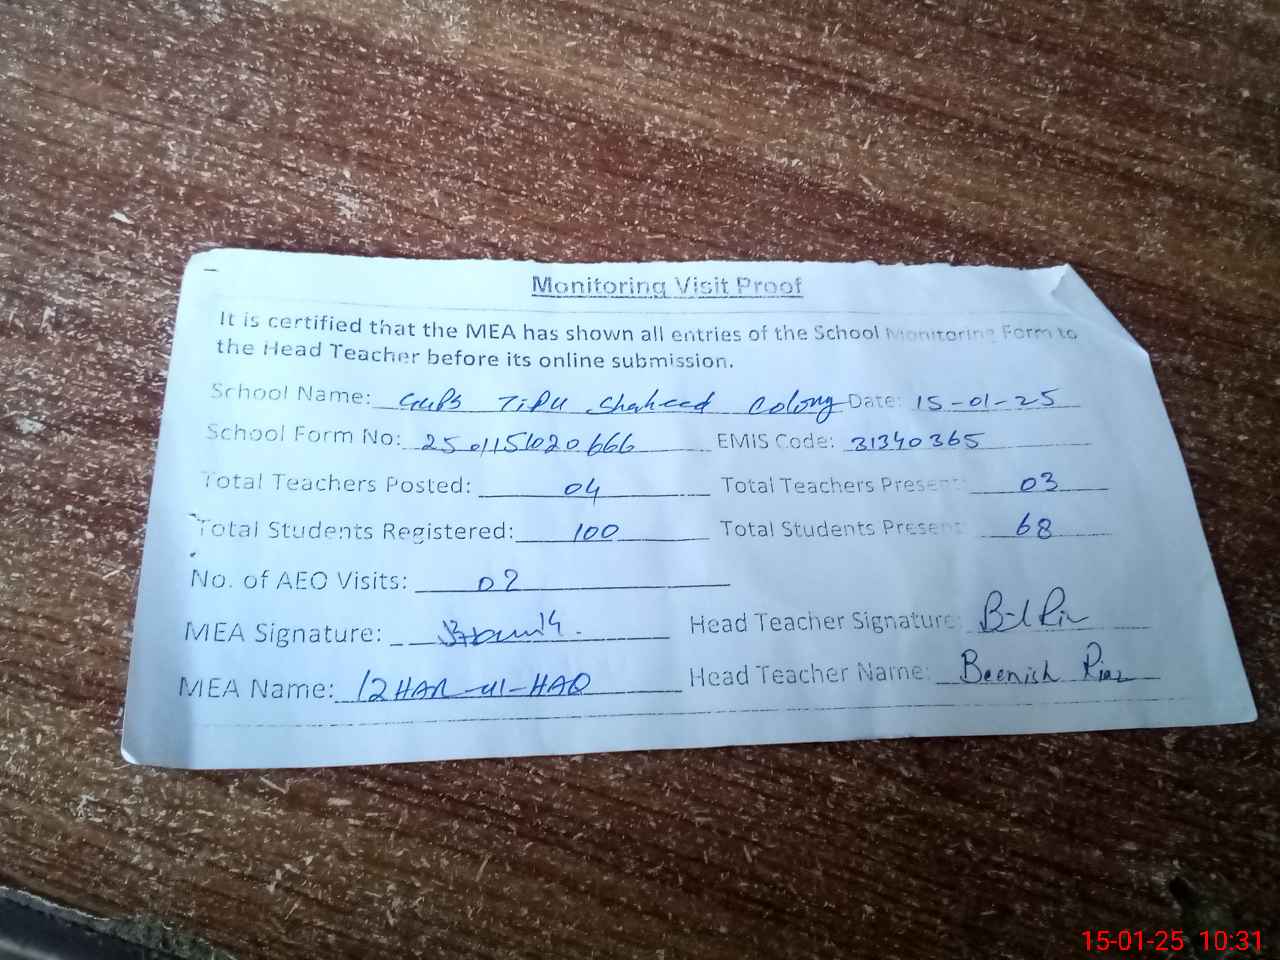 Monitoring Visit Proof
It is certified that the MEA has shown all entries of the School Monitoring Form to
the Head Teacher before its online submission.
School Name: GMPS TIPU Shaheed Colony Date: 15-01-25
School Form No: 2501151020666 EMIS Code: 31340365
Total Teachers Posted: 04 Total Teachers Present: 03
Total Students Registered: 100 Total Students Present: 68
No. of AEO Visits: 02
MEA Signature: Head Teacher Signature:
MEA Name: IZHAR-ul-HAQ Head Teacher Name: Beenish Riaz
15-01-25 10:31